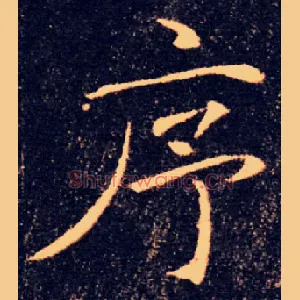 序
Shufawang.cn